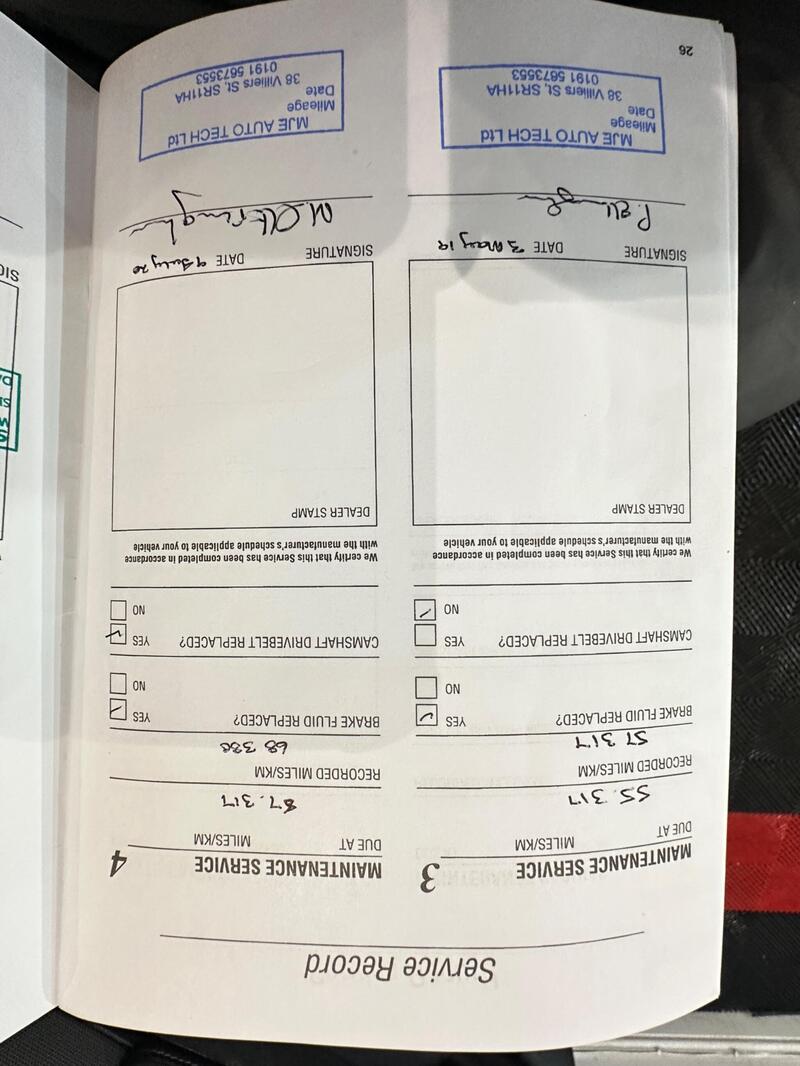 Service Record
MAINTENANCE SERVICE 3
DUE AT MILES/KM
55.317
RECORDED MILES/KM
57 317
BRAKE FLUID REPLACED? YES
NO
CAMSHAFT DRIVEBELT REPLACED? YES
NO
We certify that this Service has been completed in accordance
with the manufacturer's schedule applicable to your vehicle
DEALER STAMP
SIGNATURE DATE 3 May 19
MJE AUTO TECH Ltd
Mileage
Date
38 Villiers St, SR11HA
0191 5673553
26
MAINTENANCE SERVICE 4
DUE AT MILES/KM
87.317
RECORDED MILES/KM
68 380
BRAKE FLUID REPLACED? YES
NO
CAMSHAFT DRIVEBELT REPLACED? YES
NO
We certify that this Service has been completed in accordance
with the manufacturer's schedule applicable to your vehicle
DEALER STAMP
SIGNATURE DATE 9 July 20
MJE AUTO TECH Ltd
Mileage
Date
38 Villiers St, SR11HA
0191 5673553